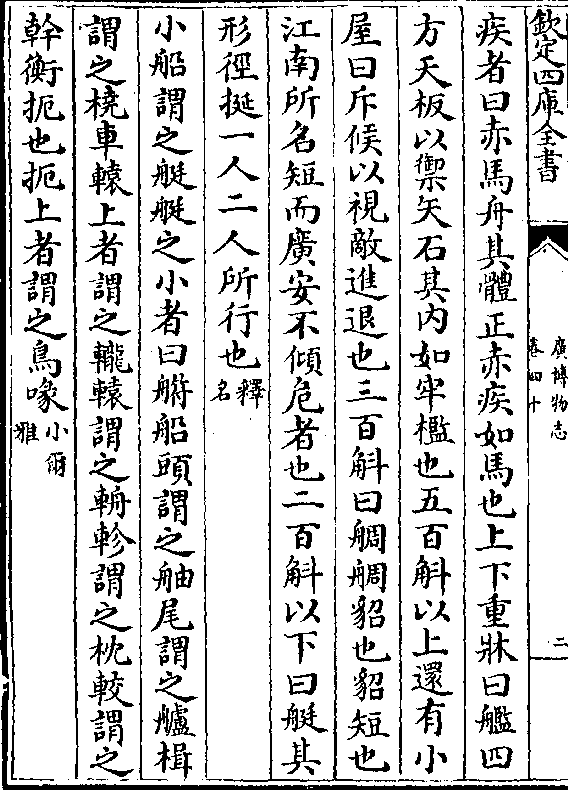 欽定四庫全書
廣博物志
卷四十
二
疾者曰赤馬舟其體正赤疾如馬也上下重牀曰艦四
方天板以禦矢石其内如牢檻也五百斛以上還有小
屋曰斥候以視敵進退也三百斛曰鯛鯛貂也貂短也
江南所名短而廣安不傾危者也二百斛以下曰艇其
形徑挺一人二人所行也釋名
小船謂之艇艇之小者曰艀船頭謂之舳尾謂之艫楫
謂之橈車轅上者謂之轆轅謂之輈軫謂之枕較謂之
幹衡扼也扼上者謂之烏啄小爾雅